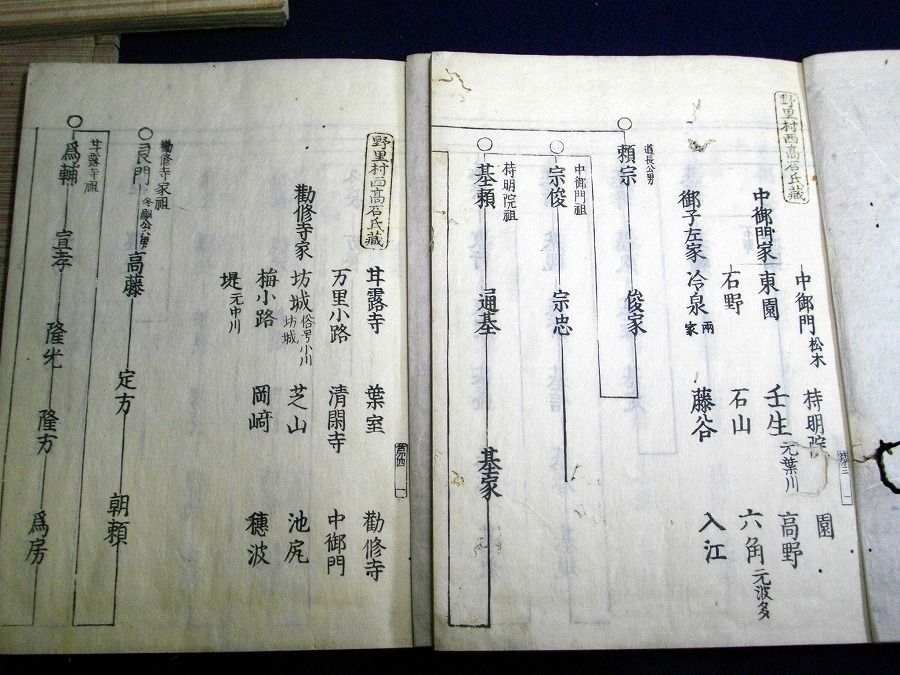 野里村西高石氏蔵
中御門松木 持明院 園
中御門家 東園 壬生元葉川 高野
石野 石山 六角元波多
御子左家 冷泉両家 藤谷 入江
道長公男
頼宗 俊家
中御門祖
宗俊 宗忠
持明院祖
基頼 通基 基家
野里村西高石氏蔵
甘露寺 葉室 勧修寺
万里小路 清閑寺 中御門
勧修寺家 坊城俗号小川坊城 芝山 池尻
梅小路 岡﨑 穂波
堤元中川
勧修寺家祖
良門冬嗣公男 高藤 定方 朝頼
甘露寺祖
為輔 宣孝 隆光 隆方 為房